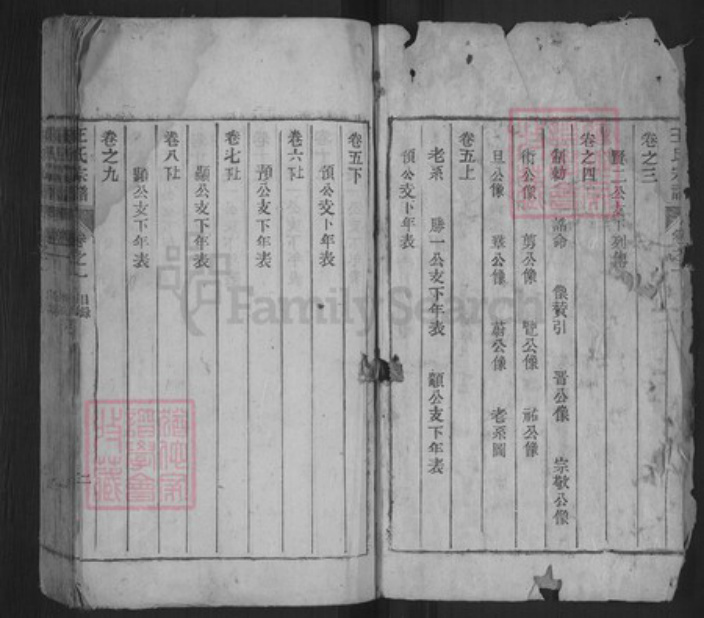 卷之三
賢二公支下列傳
卷之四
制勅 誥命 像贊引 晉公像 宗敬公像
衛公像 剪公像 覽公像 祐公像
旦公像 公像 公像 老系圖
卷五上
老系 勝一公支下年表 顯公支下年表
預公支下年表
卷五下
預公支下年表
卷六下
預公支下年表
卷七下
顯公支下年表
卷八下
顯公支下年表
卷之九
王氏宗譜 卷之一 目錄 二
FamilySearch